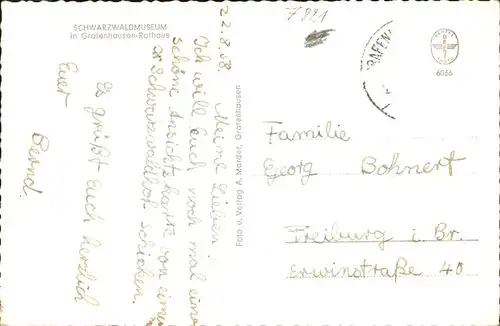 SCHWARZWALDMUSEUM
in Grafenhausen-Rothaus
22.8.58.
Meine Lieben!
Ich will Euch noch mal eine
schöne Ansichtskarte von einem
Schwarzwaldhof schicken.
Es grüßt Euch herzlich
Euer
Bernd.
Foto u. Verlag A. Morden, Grafenhausen
F 821
GRAFENHA
6066
Familie
Georg Bohnert
Freiburg i. Br.
Erwinstraße 40